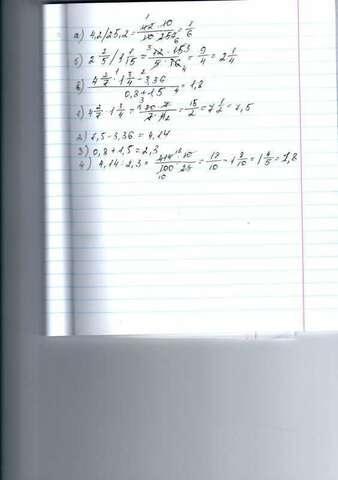 а) 4,2/25,2 = 42·10/10·252 = 1/6
б) 2 2/5 / 1 1/15 = 12·15/5·16 = 9/4 = 2 1/4
в) (4 2/7 · 1 3/4 - 3,36)/(0,8+1,5) = 1,8
1) 4 2/7 · 1 3/4 = 30·7/7·4 = 15/2 = 7 1/2 = 7,5
2) 7,5-3,36 = 4,14
3) 0,8+1,5=2,3
4) 4,14:2,3 = 414·10/100·23 = 18/10 = 1 8/10 = 1 4/5 = 1,8